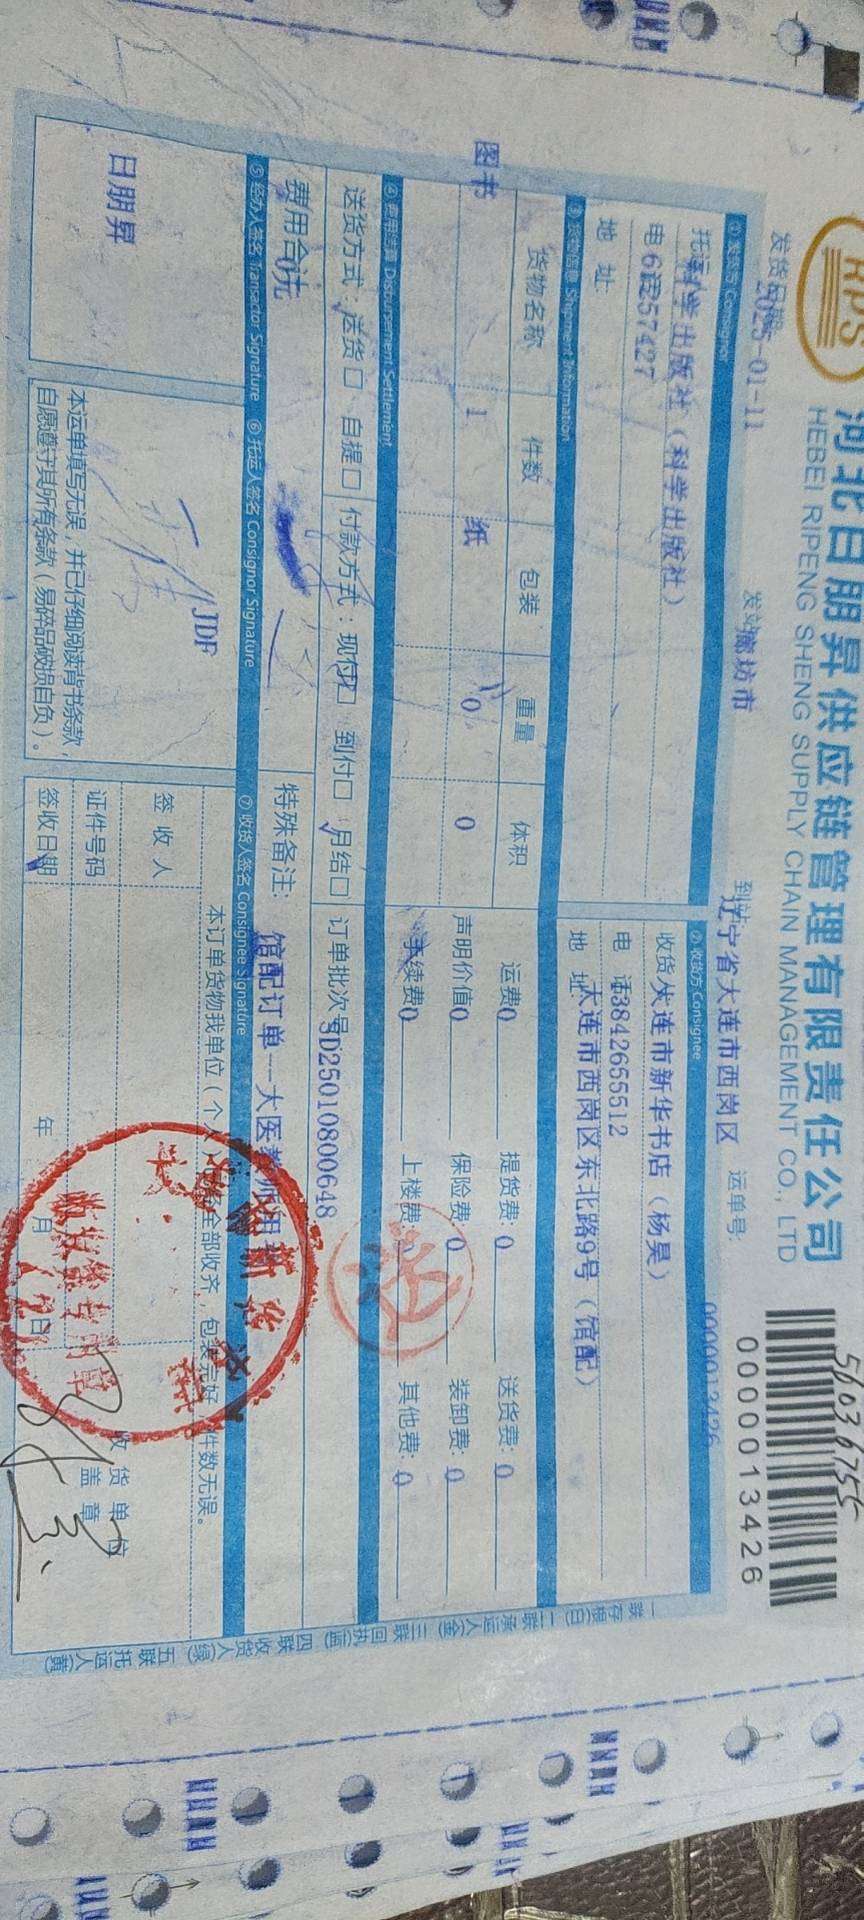 HPS
河北日朋昇供应链管理有限责任公司
HEBEI RIPENG SHENG SUPPLY CHAIN MANAGEMENT CO., LTD
56036755
0000013426
发货日期 2025-01-11
发站 廊坊市
到站 辽宁省大连市西岗区
运单号:
0000013426
① 发货方 Consignor
② 收货方 Consignee
托运 科学出版社（科学出版社）
收货 大连市新华书店（杨昊）
电 话
电 话 13842655512
地 址
地 址 大连市西岗区东北路9号（馆配）
③ 货物信息 Shipment Information
货物名称 件数 包装 重量 体积
运费0 提货费: 0 送货费: 0
图书 1 纸 0 0
声明价值0 保险费: 0 装卸费: 0
手续费0 上楼费: 0 其他费: 0
④ 费用结算 Disbursement Settlement
送货方式: 送货□ 自提□ 付款方式: 现付□ 到付□ 月结□ 订单批次号 SD25010800648
费用合 0元
特殊备注: 馆配订单--大医教师用
⑤ 经办人签名 Transactor Signature ⑥ 托运人签名 Consignor Signature ⑦ 收货人签名 Consignee Signature
日朋昇
JDF
本运单填写无误，并已仔细阅读背书条款，
自愿遵守其所有条款（易碎品破损自负）。
本订单货物我单位（个人）已全部收齐，包装完好，件数无误。
签 收 人
证件号码
签收日期 年 月 日
收 货 单 位
盖 章
一联存根(白) 二联承运人(金) 三联回执(蓝) 四联收货人(绿) 五联托运人(黄)